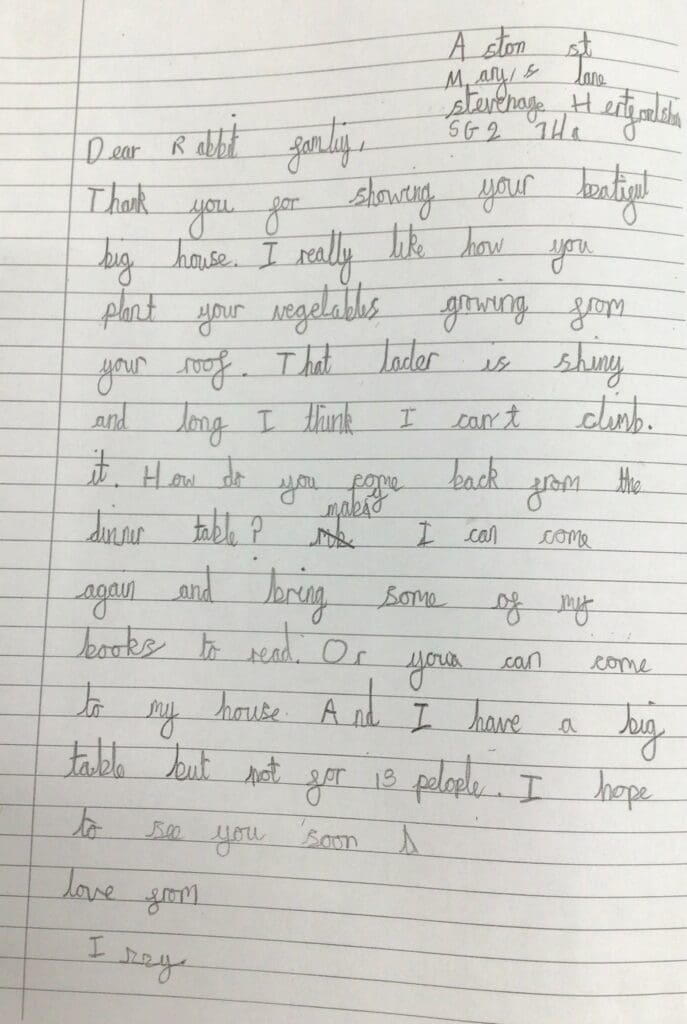 Aston st
Mary,s lane
stevenage Hertfordshi
SG2 7Ha
Dear Rabbit famliy,
Thank you for showing your beatiful
big house. I really like how you
plant your vegetables growing from
your roof. That lader is shiny
and long I think I can't climb.
it. How do you come back from the
dinner table? I can come
again and bring some of my
books to read. Or you can come
to my house. And I have a big
table but not for 13 pelople. I hope
to see you soon
love from